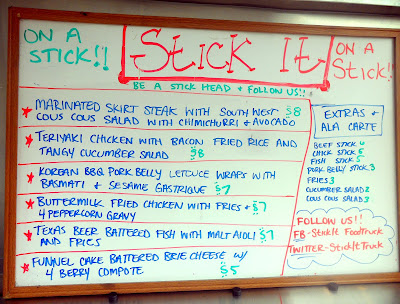 ON A
STICK!!
STICK IT
ON A
STICK!!
BE A STICK HEAD & FOLLOW US!!
★ MARINATED SKIRT STEAK WITH SOUTH WEST $8
COUS COUS SALAD WITH CHIMICHURRI & AVOCADO
★ TERIYAKI CHICKEN WITH BACON FRIED RICE AND
TANGY CUCUMBER SALAD $8
★ KOREAN BBQ PORK BELLY LETTUCE WRAPS WITH
BASMATI & SESAME GASTRIQUE $7
★ BUTTERMILK FRIED CHICKEN WITH FRIES & $7
4 PEPPERCORN GRAVY
★ TEXAS BEER BATTERED FISH WITH MALT AIOLI $7
AND FRIES
★ FUNNEL CAKE BATTERED BRIE CHEESE W/
4 BERRY COMPOTE $5
EXTRAS &
ALA CARTE
BEEF STICK 6
CHICK STICK 5
FISH STICK 5
PORK BELLY STICK 3
FRIES 3
CUCUMBER SALAD 2
COUS COUS SALAD 3
FOLLOW US!!
FB-StickIt FoodTruck
TWITTER-StickItTruck